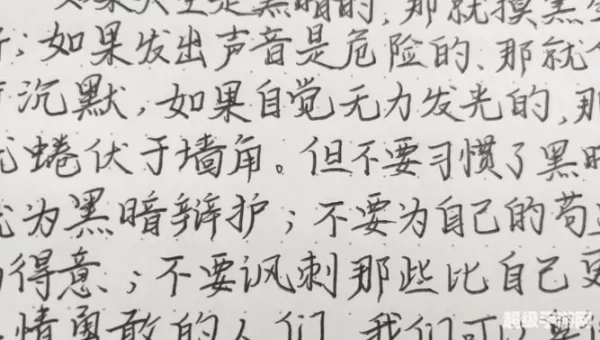 如果天空是黑暗的,那就摸黑
;如果发出声音是危险的、那就
沉默,如果自觉无力发光的,那
蜷伏于墙角。但不要习惯了黑暗
为黑暗辩护;不要为自己的苟
得意、;不要讽刺那些比自己更
情勇敢的人们 我们可以
超级手游网